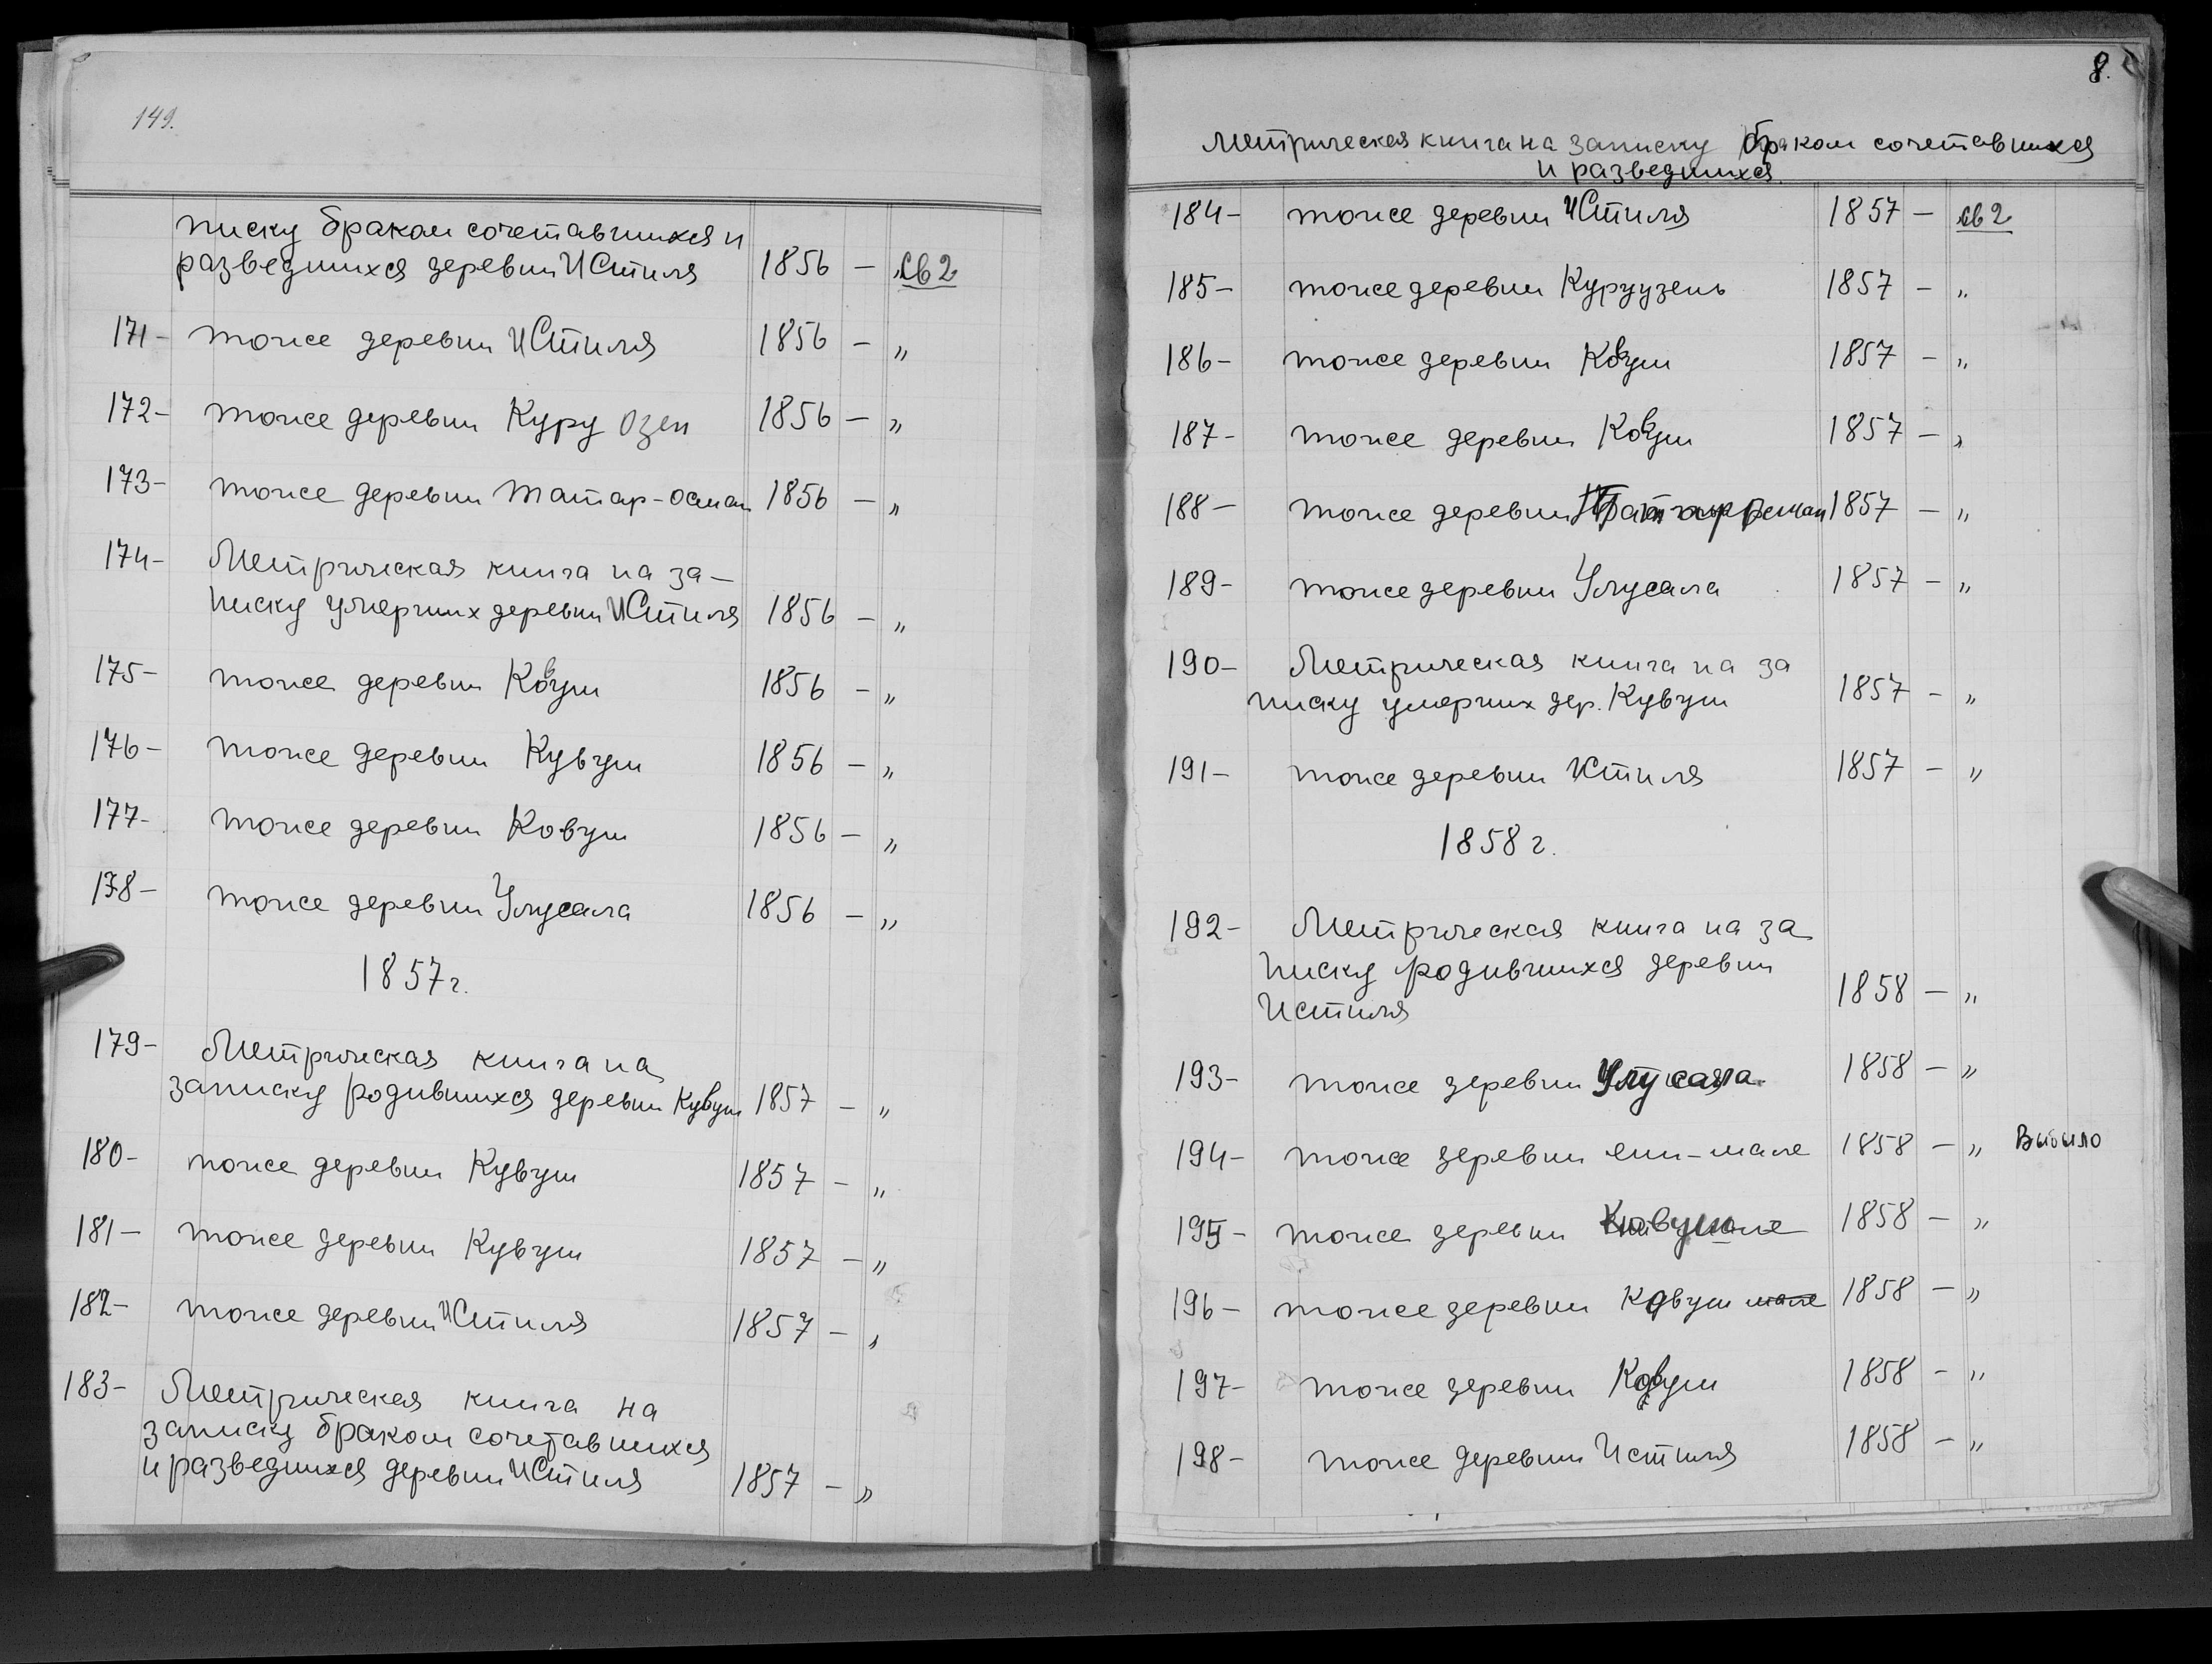 149.
писку браком сочетавшихся и
разведшихся деревни Истиля 1856 — Св 2
171 — тоже деревни Истиля 1856 — "
172 — тоже деревни Куру Озен 1856 — "
173 — тоже деревни Татар-осман 1856 — "
174 — Метрическая книга на за-
писку умерших деревни Истиля 1856 — "
175 — тоже деревни Ковуш 1856 — "
176 — тоже деревни Кувуш 1856 — "
177 — тоже деревни Ковуш 1856 — "
178 — тоже деревни Улусала 1856 — "
1857 г.
179 — Метрическая книга на
записку родившихся деревни Кувуш 1857 — "
180 — тоже деревни Кувуш 1857 — "
181 — тоже деревни Кувуш 1857 — "
182 — тоже деревни Истиля 1857 — "
183 — Метрическая книга на
записку браком сочетавшихся
и разведшихся деревни Истиля 1857 — "
8.
Метрическая книга на записку браком сочетавшихся
и разведшихся.
184 — тоже деревни Истиля 1857 — Св 2
185 — тоже деревни Куруузень 1857 — "
186 — тоже деревни Ковуш 1857 — "
187 — тоже деревни Ковуш 1857 — "
188 — тоже деревни Татар Осман 1857 — "
189 — тоже деревни Улусала 1857 — "
190 — Метрическая книга на за
писку умерших дер. Кувуш 1857 — "
191 — тоже деревни Истиля 1857 — "
1858 г.
192 — Метрическая книга на за
писку родившихся деревни
Истиля 1858 — "
193 — тоже деревни Улусала 1858 — "
194 — тоже деревни ени-мале 1858 — " Выбыло
195 — тоже деревни Ковуш 1858 — "
196 — тоже деревни Ковуш мале 1858 — "
197 — тоже деревни Ковуш 1858 — "
198 — тоже деревни Истиля 1858 — "